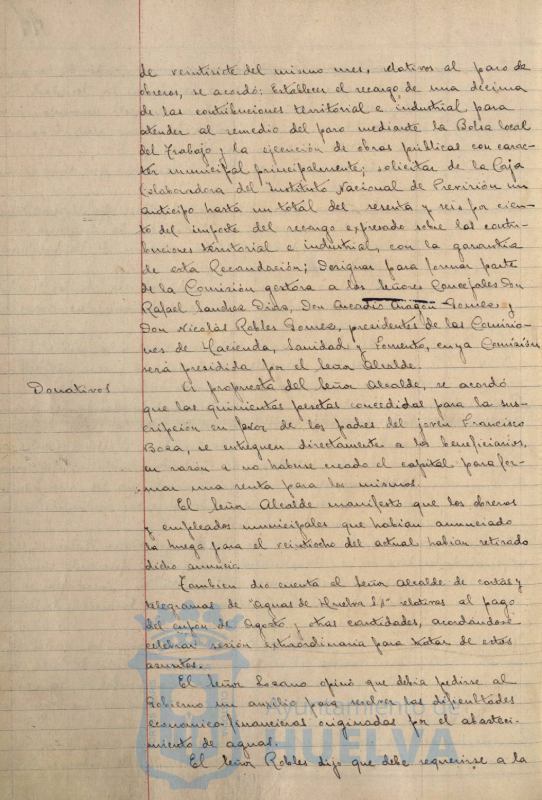 de veintisiete del mismo mes, relativos al paro de
obreros, se acordó: Establecer el recargo de una décima
de las contribuciones territorial e industrial para
atender al remedio del paro mediante la Bolsa local
del Trabajo y la ejecución de obras públicas con carac-
ter municipal principalmente; solicitar de la Caja
Colaboradora del Instituto Nacional de Previsión un
anticipo hasta un total del sesenta y seis por cien-
to del importe del recargo expresado sobre las contri-
buciones territorial e industrial, con la garantía
de esta Recaudación; Designar para formar parte
de la Comisión gestora a los Señores Concejales Don
Rafael Sanchez Diaz, Don Arcadio Aragón Gomez y
Don Nicolás Robles Gomez, presidentes de las Comisio-
nes de Hacienda, Sanidad y Fomento, cuya Comisión
será presidida por el Señor Alcalde.
Donativos
A propuesta del Señor Alcalde, se acordó
que las quinientas pesetas concedidas para la sus-
cripción en favor de los padres del joven Francisco
Boza, se entreguen directamente a los beneficiarios,
en razón a no haberse creado el capital para for-
mar una renta para los mismos.
El Señor Alcalde manifestó que los obreros
y empleados municipales que habian anunciado
la huega para el veintiocho del actual habian retirado
dicho anuncio.
Tambien dio cuenta el Señor Alcalde de cartas y
telegramas de "Aguas de Huelva S.A" relativas al pago
del cupón de Agosto y otras cantidades, acordandose
celebrar sesión extraordinaria para tratar de estos
asuntos.
El Señor Lozano opinó que debia pedirse al
Gobierno un auxilio para resolver las dificultades
economico-financieras originadas por el abasteci-
miento de aguas.
El Señor Robles dijo que debe requerirse a la
Ayuntamiento de
HUELVA